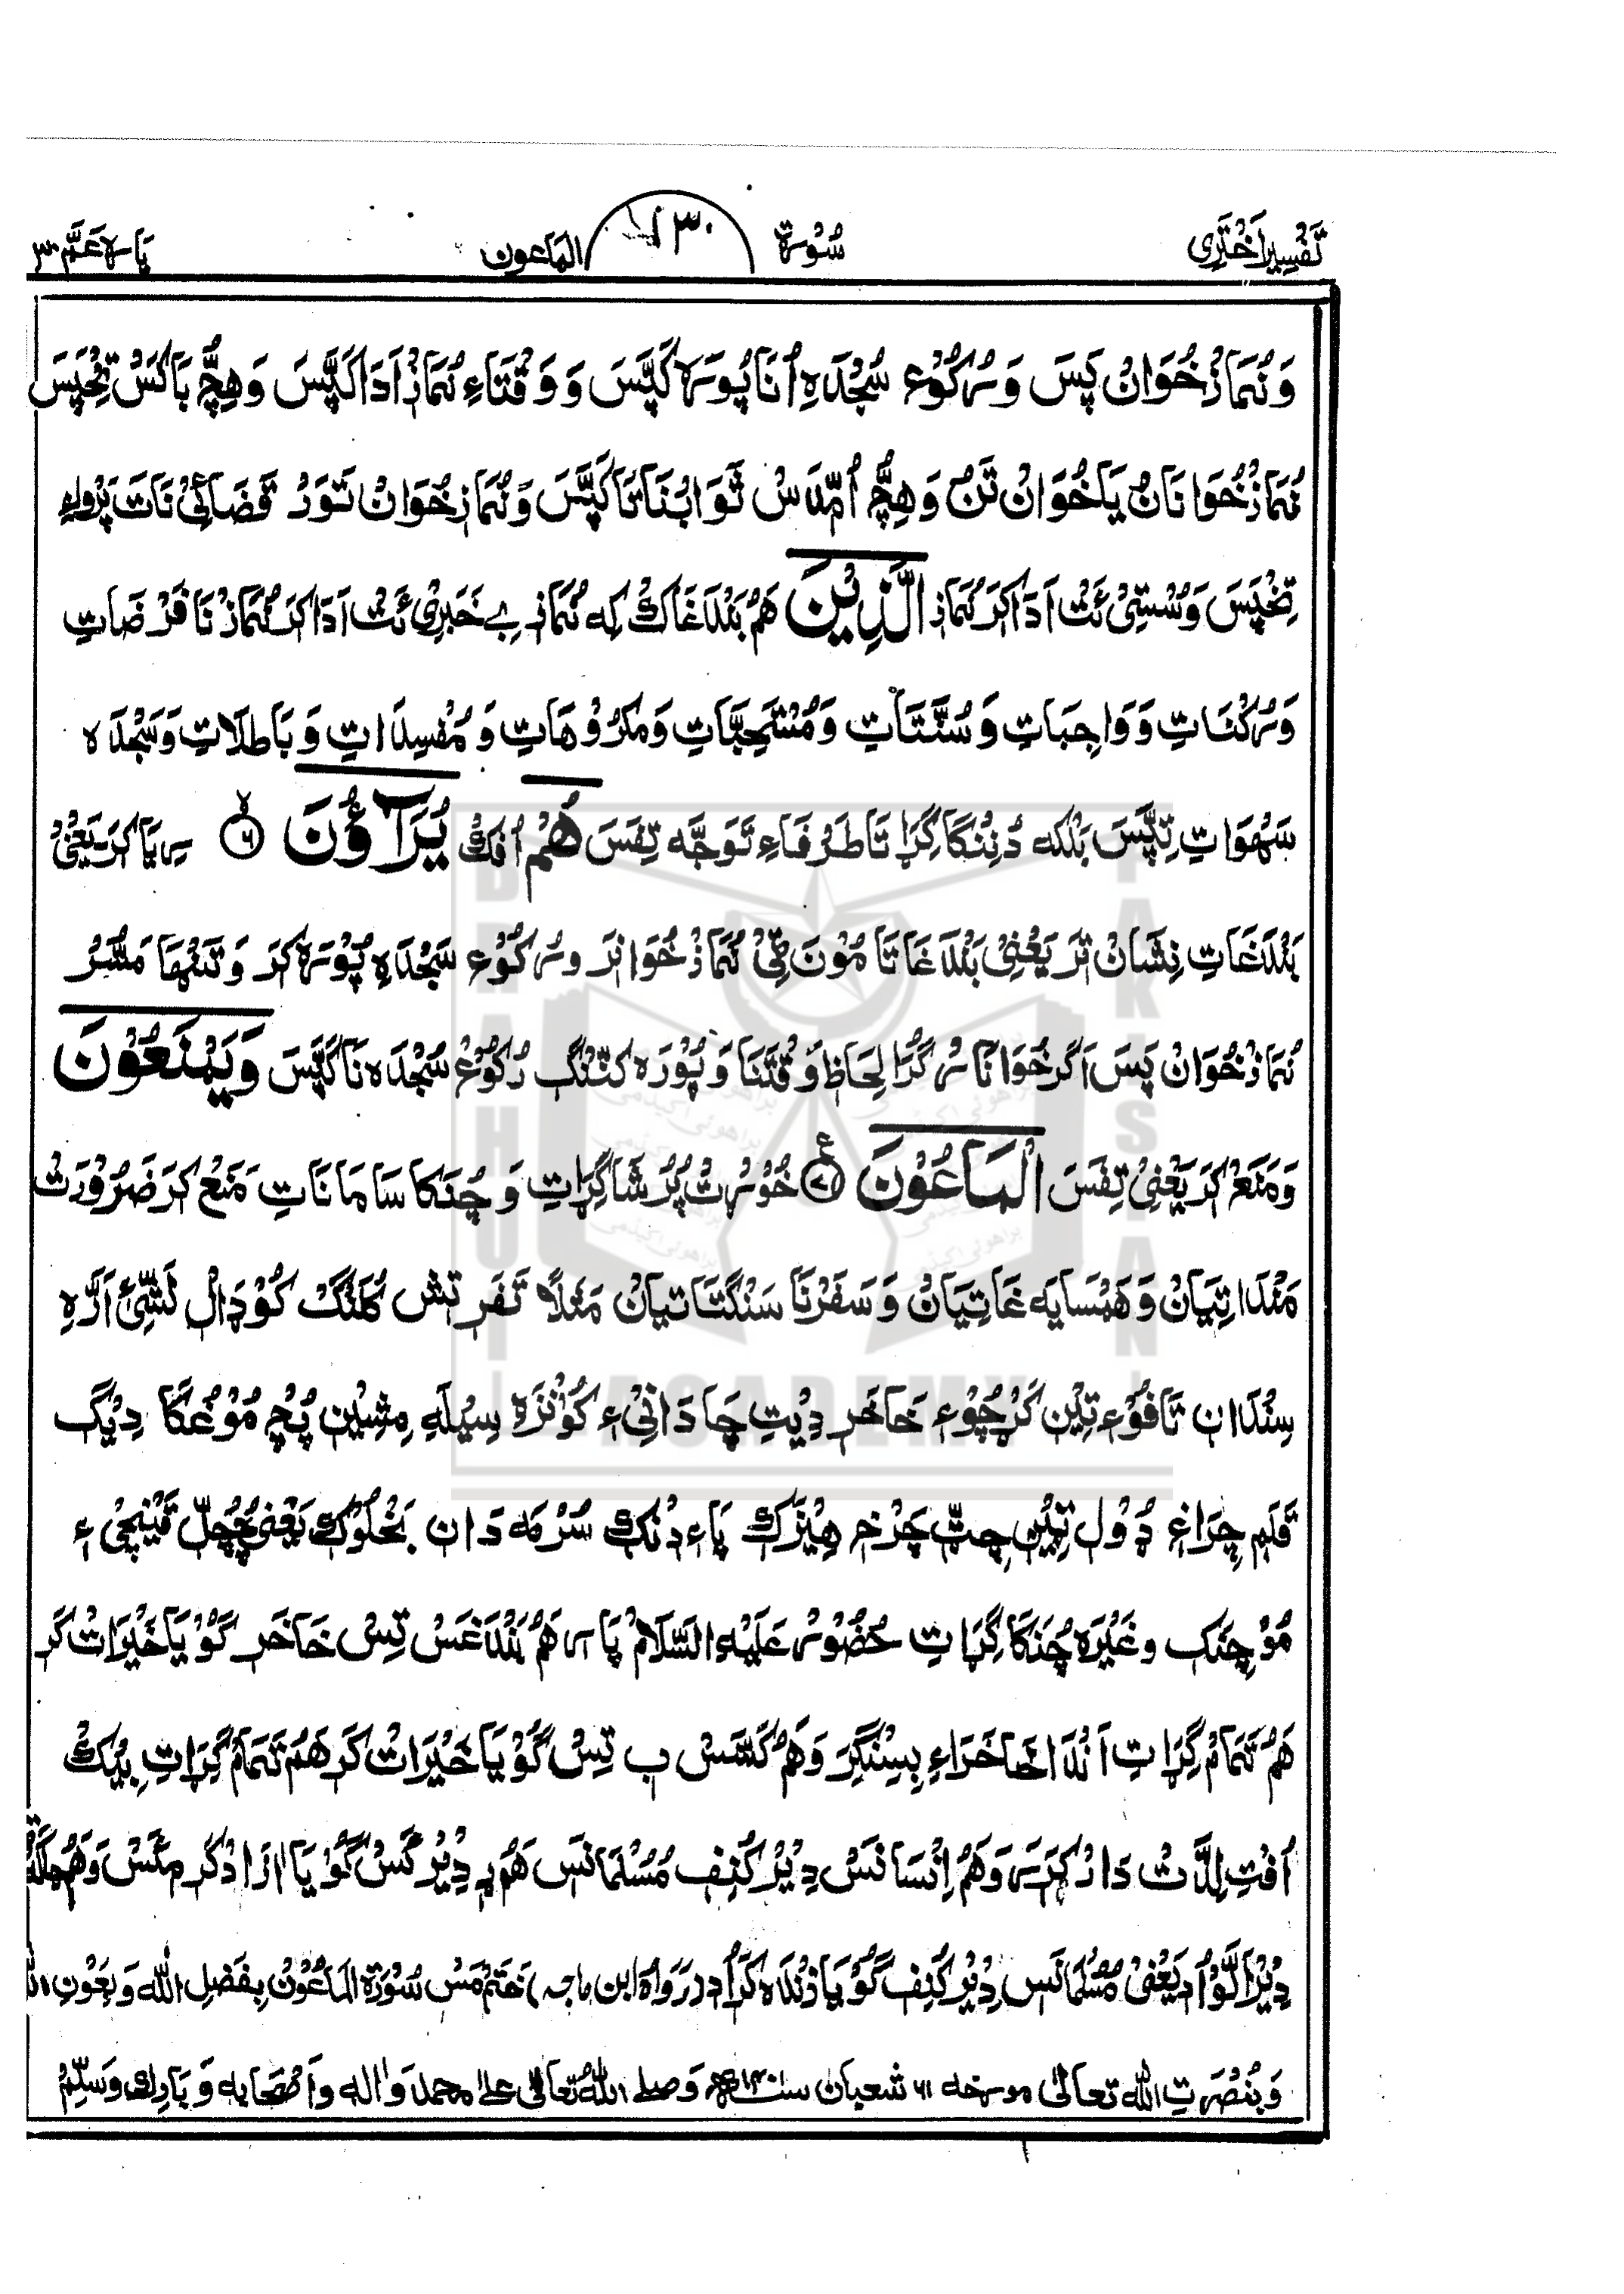 تَفْسِيرِ اَخْتَرِی سُوْرَۃ ١٣٠ الماعون پَارہ عَمَّ ٣٠
وَنُمَازْ خُوَانْ پَسَ وَرُکُوْع سُجْدَہِ اُنَا پُوْرَہ کَپَّسَ وَ وَقْتَاءِ نُمَازْ اَدَا کَپَّسَ وَهِچُّ بَاکَسْ تِخْپَسَ
نُمَازْ خُوَانَانْ یَا خُوَانْ تَنْ وَهِچُّ اُمِّدَسْ ثَوَابْنَا تَا کَپَّسَ وَنُمَازْ خُوَانْ تَوَرْ قَضَائِیْ نَاتَ پَرْوَاءِ
تِخْپَسَ وَسُسْتِیْ ئَتْ اَدَا کَرَ نُمَازِ الَّذِیْنَ هَمْ بَنْدَغَاکْ کِه نُمَازِ بِے خَبَرِیْ ئَتْ اَدَا کَرَ نُمَازْ نَا فَرْضَاتِ
وَرُکْنَاتِ وَوَاجِبَاتِ وَسُنَّتَاتِ وَمُسْتَحِبَّاتِ وَمَکْرُوْهَاتِ وَمُفْسِدَاتِ وَبَاطِلَاتِ وَسَجْدَہ
سَهْوَاتِ تِپَّسَ بَلْکِه دُنِنْگَا کِرَا تَا طَرْفَاءِ تَوَجَّه تِفَسَ هُمْ اُفْکْ یُرَآءُوْنَ ٦ رِیَا کَرَ یَعْنِیْ
بَنْدَغَاتِ نِشَانْ تَرَ یَعْنِیْ بَنْدَغَاتَا مُوْنَ ٹِیْ نُمَازْ خُوَانِرَ ورُکُوْع سَجْدَہِ پُوْرَہ کَرَ وَتَنْهَا مَسُّرْ
نُمَازْ خُوَانْ پَسَ اَگَرْ خُوَانَا رُ گُڑَا لِحَاظِ وَقْتَنَا وَپُوْرَہ کَنِّنْگ رُکُوْعْ سَجْدَہ نَا کَپَّسَ وَیَمْنَعُوْنَ
وَمَنَعْ کَرَ یَعْنِیْ تِفَسَ الْمَاعُوْنَ ٧ خُوْرْتْ پُرْ شَا گِرَاتِ وَچُنَکَا سَامَانَاتِ مَنَعْ کَرَ ضَرُوْرَتْ
مَنْدَاتِیَانْ وَهَمْسَایَه غَاتِیَانْ وَسَفَرْنَا سَنْگَتَاتِیَانْ مَثَلاً تَفَر تَش کُلَنْگْ کُوْدَالْ لَسِّئ اَرَّہِ
سِنْدَانِ تَافُوْءِ تِیْنِ کُرْچُوْءِ خَاخَرِ دِیْتِ چَا دَانِیْءِ کُوْنْزَہِ سِیْلَهِ مِشِیْنِ پُچِ مُوْغَکَا دِیْگ
قَلَمِ چِرَاغِ ڈُوْلِ تِیْرِ چِٹِّ چَرْخِ هِیْزَکْ پَاءِ دُنْکِ سُرْمَه دَانِ بَخْلُوْکْ یَعْنِیْ چُچِلّ قَیْنْچِیْ ءِ
مُوْچِنَک وغَیْرَہ چُنَکَا گِرَاتِ حُضُوْر عَلَیْهِ السَّلَامْ پَارَ هَمْ بَنْدَغَسْ تِسْ خَاخَرِ گَوْیَا خَیْرَاتْ کَرِ
هَمْ تَمَامْ گِرَاتِ اَنْدَا خَاخَرَاءِ بِسِنْگِرَ وَهَمْ کَسَّسْ بِ تِسْ گَوْیَا خَیْرَاتْ کَرِ هَمْ تَمَامْ گِرَاتِ بِیْکْ
اُفْتِ لِذَّتْ دَارْ کَرَے وَهَمْ اِنْسَانَسْ دِیْرْ کُنِفِ مُسْلِمَانَسِ هَمْ دِیْرْ کَسْ گَوْیَا اٰزَادْ کَرِ مئَسْ وَهَمْ جَاگَہ
دِیْرْ اَلَّوْ اُدِ یَعْنِیْ مُسْلِمَانَسِ دِیْر کُنِفِ گَوْیَا زِنْدَہ کَرْ اُدِ (رَوَاہُ ابن ماجه) خَتَمْ مَسْ سُوْرَۃُ الْمَاعُوْنْ بِفَضْلِ اللّٰه وَبِعَوْنِ اللّٰه
وَبِنُصْرَتِ اللّٰه تعَالٰی مورخه ١٦ شعبان وصلے اللّٰه تعالٰی علٰے محمد وَاٰله وَاَصْحَابِه وَبَارِك وَسَلِّمْ
BRAHUI ACADEMY PAKISTAN